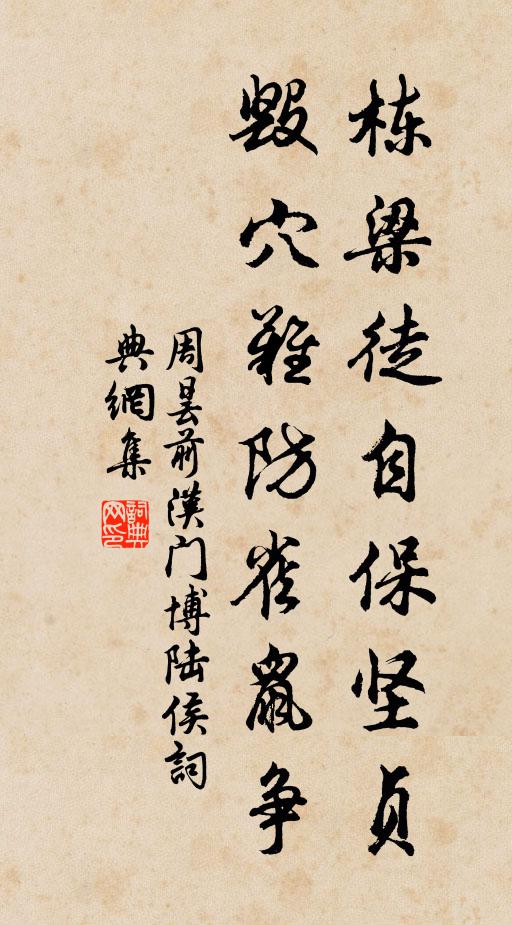 栋梁徒自保坚贞
毁穴难防雀鼠争
周昙前漢门博陆侯詞
典網集
詞典
网印